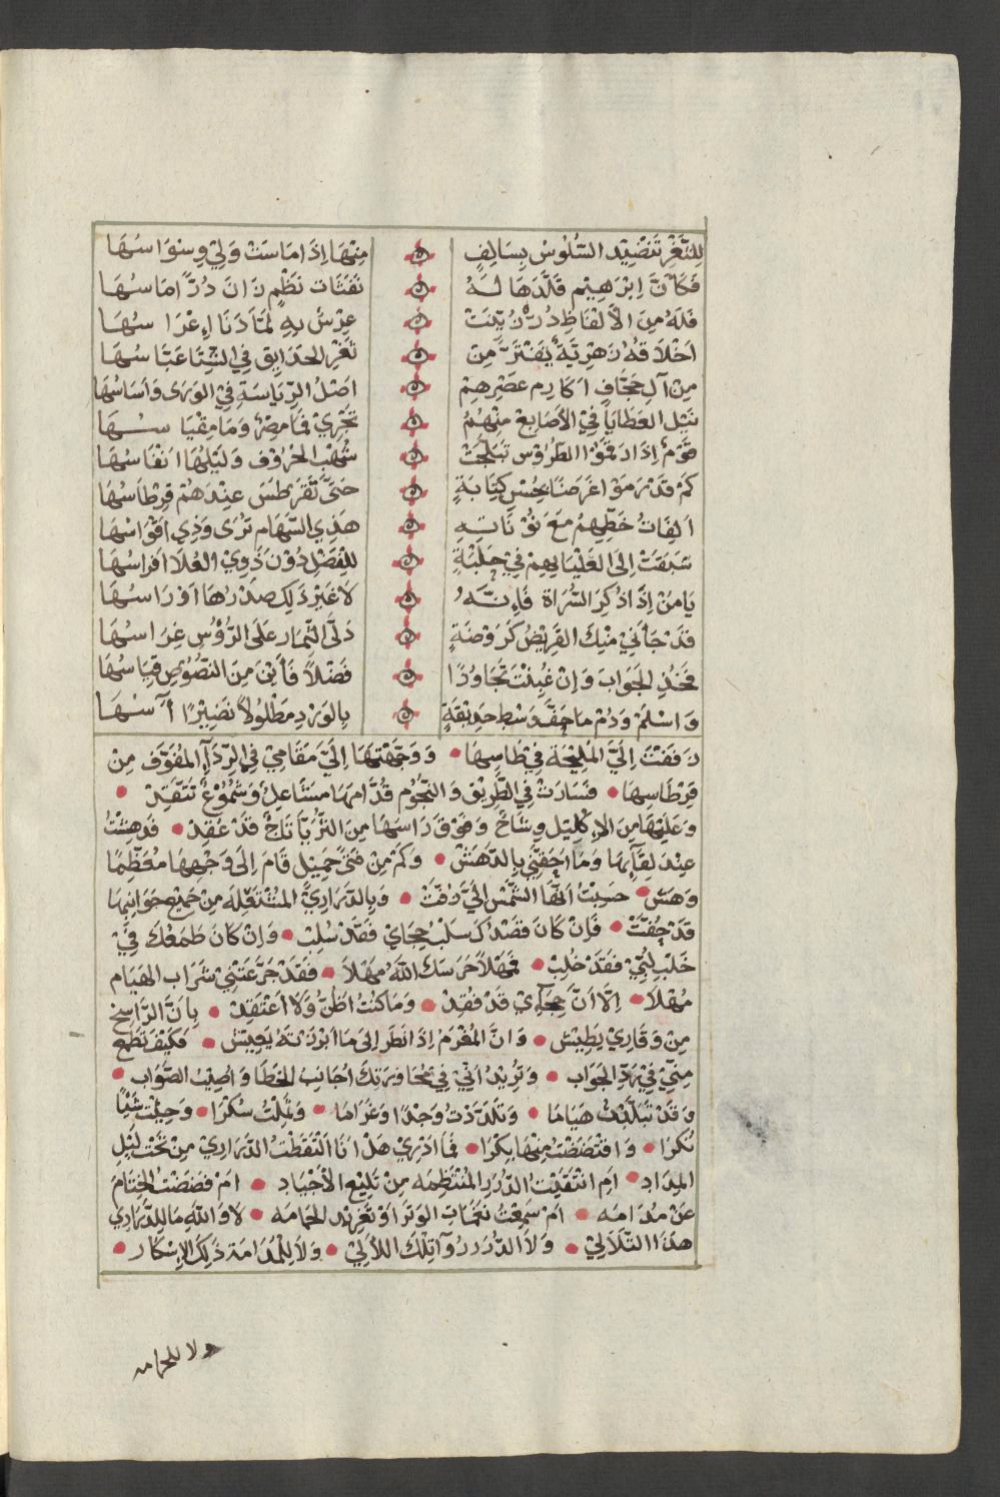 لِلثَّغْرِ تَنْضِيْدَ السُّلُوْسِ بِسَالِفٍ مِنْهَا إِذَا مَاسَتْ وَلِيْ وِسْوَاسُهَا
فَكَأَنَّ اِبْرَهِيْمَ قَلَّدَهَا لَهُ نَفَثَاتِ نَظْمٍ زَانَ دُرًّا مَاسُهَا
فَلَهُ مِنَ الْأَلْفَاظِ دُرٌّ زُيِّنَتْ عِرْسٌ بِهِ لَمَّا دَنَا إِعْرَاسُهَا
اَخْلَاقُهُ زَهْرِيَّةٌ يَفْتَرُّ مِنْ ثَغْرِ الْحَدَايِقِ فِي الشِّتَا عَبَّاسُهَا
مِنْ آلِ حَجَّافٍ اَكَارِمِ عَصْرِهِمْ اَصْلُ الرِّيَاسَةِ فِيْ الوَرَى وَاَسَاسُهَا
نَيْلُ العَطَايَا فِيْ الأَصَابِعْ مِنْهُمُ تَجْرِيْ فَمَا مِصْرٌ وَمَا مِقْيَاسُهَا
قَوْمٌ إِذَا رَقَمُوْا الطُّرُوْسَ تَبَلَّجَتْ شُهْبُ الحُرُوْفِ وَلَيْلُهَا اَنْقَاسُهَا
كَمْ قَدْ رَمَوْا غَرَضًا بِحُسْنِ كِتَابَةٍ حَتَّى تَقَرْطَسَ عِنْدَهُمْ قِرْطَاسُهَا
اَلِفَاتُ خَطِّهِمُ مَعَ نُوْنَاتِهِ هَذِي السِّهَامُ تُرَى وَذِي اَقْوَاسُهَا
سَبَقَتْ إِلَى العَلْيَا بِهِمْ فِيْ حَلْبَةٍ لِلْفَضْلِ دُوْنَ ذَوِيْ العُلَا اَفْرَاسُهَا
يَا مَنْ إِذَا ذُكِرَ السُّرَاةُ فَإِنَّهُ لَا غَيْرَ ذَلِكَ صَدْرُهَا اَوْ رَاسُهَا
قَدْ جَاْنِيْ مِنْكَ القَرِيْضُ كَرَوْضَةٍ دَلَّى الثِّمَارَ عَلَى الرُّؤُسِ غِرَاسُهَا
فَخُذِ الْجَوَابَ وَإِنْ غُبِنْتَ تَجَاوُزًا فَضْلًا فَأَيْنَ مِنَ النُّصُوْصِ قِيَاسُهَا
وَاسْلَمْ وَدُمْ مَا حَفَّ وَسْطَ حَدِيْقَةٍ بِالوَرْدِ مَطْلُوْلًا نَضِيْرًا آسُهَا
زَفَفْتَ إِلَيَّ المُلَيْحَةَ فِيْ طَاسِهَا • وَوَجَّهْتَهَا إِلَيَّ مَقَامِيْ فِي الرِّدَآءِ المُفَوَّفِ مِنْ
قِرْطَاسِهَا • فَسَارَتْ فِي الطَّرِيْقِ وَالنُّجُوْمُ قُدَّامَهَا مَشَاعِلٌ وَشُمُوْعٌ تَتَّقِدُ •
وَعَلَيْهَا مِنَ الإِكْلِيْلِ وِشَاحٌ وَفَوْقَ رَاسِهَا مِنَ الثُّرَيَّا تَاجٌ قَدْ عُقِدْ • فَدَهِشْتُ
عِنْدَ لِقَآئِهَا وَمَا اَحَقَّنِي بِالدَّهَشْ • وَكَمْ مِنْ فَتًى جَمِيْلٍ قَامَ إِلَى وَجْهِهَا مُعَظِّمًا
وَهَشْ • حَسِبْتُ اَنَّهَا الشَّمْسُ إِلَيَّ زُفَّتْ • وَبِالدَّرَارِيِّ المُشْتَعِلَةِ مِنْ جَمِيْعِ جَوَانِبِهَا
قَدْ حُفَّتْ • فَإِنْ كَانَ قَصْدُكَ سَلْبَ حِجَايَ فَقَدْ سُلِبْ • وَإِنْ كَانَ طَمَعُكَ فِيْ
خَلْبِ لُبِّيْ فَقَدْ خُلِبْ • فَمَهْلًا حَرَسَكَ اللَّهُ مَهْلًا • فَقَدْ جَرَّعْتَنِيْ شَرَابَ الهُيَامِ
مُهْلًا • إِلَّا اَنَّ حِجَآيَ قَدْ فُقِدْ • وَمَا كُنْتُ اَظُنُّ وَلَا اَعْتَقِدْ • بِاَنَّ الرَّاسِخَ
مِنْ وَقَارِيْ يَطِيْشْ • وَانَّ المُغْرَمَ إِذَا نَظَرَ إِلَى مَا اَبْرَزْتَهُ يَعِيْشْ • فَكَيْفَ تَطْمَعُ
مِنِّيْ فِيْ رَدِّ الجَوَابِ • وَتُرِيْدُ اَنِّيْ فِيْ مُحَاوَرَتِكَ اُجَانِبُ الخَطَا وَاُصِيْبُ الصَّوَابَ •
وَقَدْ تَبَلْبَلْتُ هُيَامًا • وَتَلَدَّدْتُ وَجْدًا وَغَرَامًا • وَثَمِلْتُ سُكْرًا • وَجِيْتَ شَيْئًا
نُكْرًا • وَافْتَضَضْتَ مِنْهَا بِكْرًا • فَمَا اَدْرِيْ هَلْ اَنَا الْتَقَطْتُ الدَّرَارِيَ مِنْ تَحْتِ لَيْلِ
المِدَادِ • اَمِ انْتَقَيْتُ الدُّرَرَ المُنْتَظِمَةَ مِنْ تَلِيْعِ الأَجْيَادِ • اَمْ فَضَضْتُ الخِتَامَ
عَنْ مُدَامَهْ • اَمْ سَمِعْتُ نَغَمَاتِ الوَتَرِ اَوْ تَغْرِيْدَ الحَمَامَهْ • لَا وَاللَّهِ مَا لِلدَّرَارِيْ
هَذَا التَّلَالِيْ • وَلَا الدُّرَرُ رُوَآ تِلْكَ اللَآلِيْ • وَلَا لِلْمُدَامَةِ ذَلِكَ الإِسْكَارُ •
ولا للحمامه